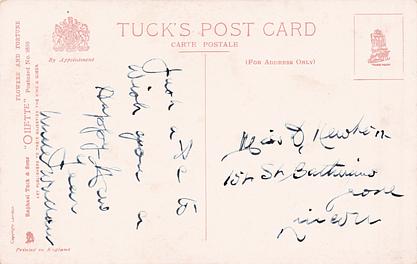 TUCK'S POST CARD
CARTE POSTALE
By Appointment
(FOR ADDRESS ONLY)
Raphael Tuck & Sons' "OILETTE" Postcard No.
FLOWERS AND FORTUNE
Copyright London
Printed in England
Just a
Wish you a
Happy New
Year
Miss D Newton
154 St Catherines
Lincoln